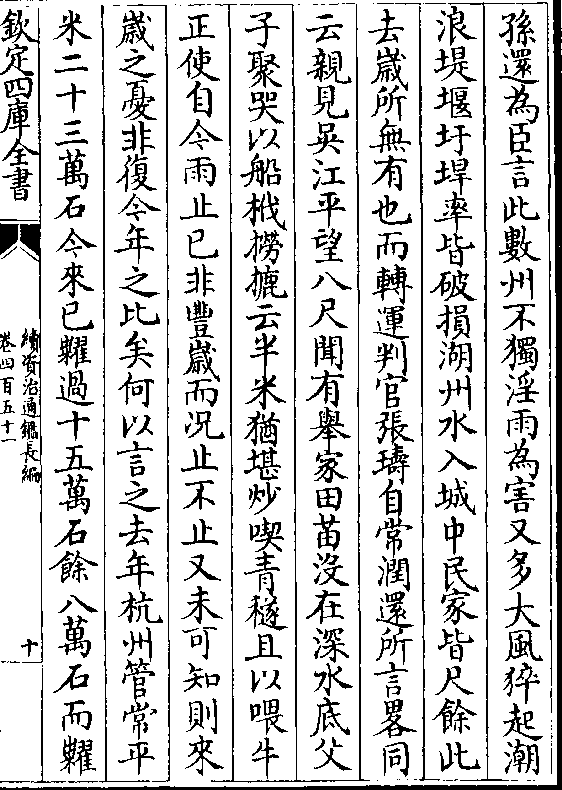 孫還為臣言此數州不獨淫雨為害又多大風猝起潮
浪堤堰圩垾率皆破損湖州水入城中民家皆尺餘此
去嵗所無有也而轉運判官張璹自常潤還所言畧同
云親見吳江平望八尺聞有舉家田苗沒在深水底父
子聚哭以船栰撈摝云半米猶堪炒喫青穟且以喂牛
正使自今雨止已非豐嵗而况止不止又未可知則來
嵗之憂非復今年之比矣何以言之去年杭州管常平
米二十三萬石今來已糶過十五萬石餘八萬石而糶
欽定四庫全書
續資治通鑑長編
卷四百五十一
十